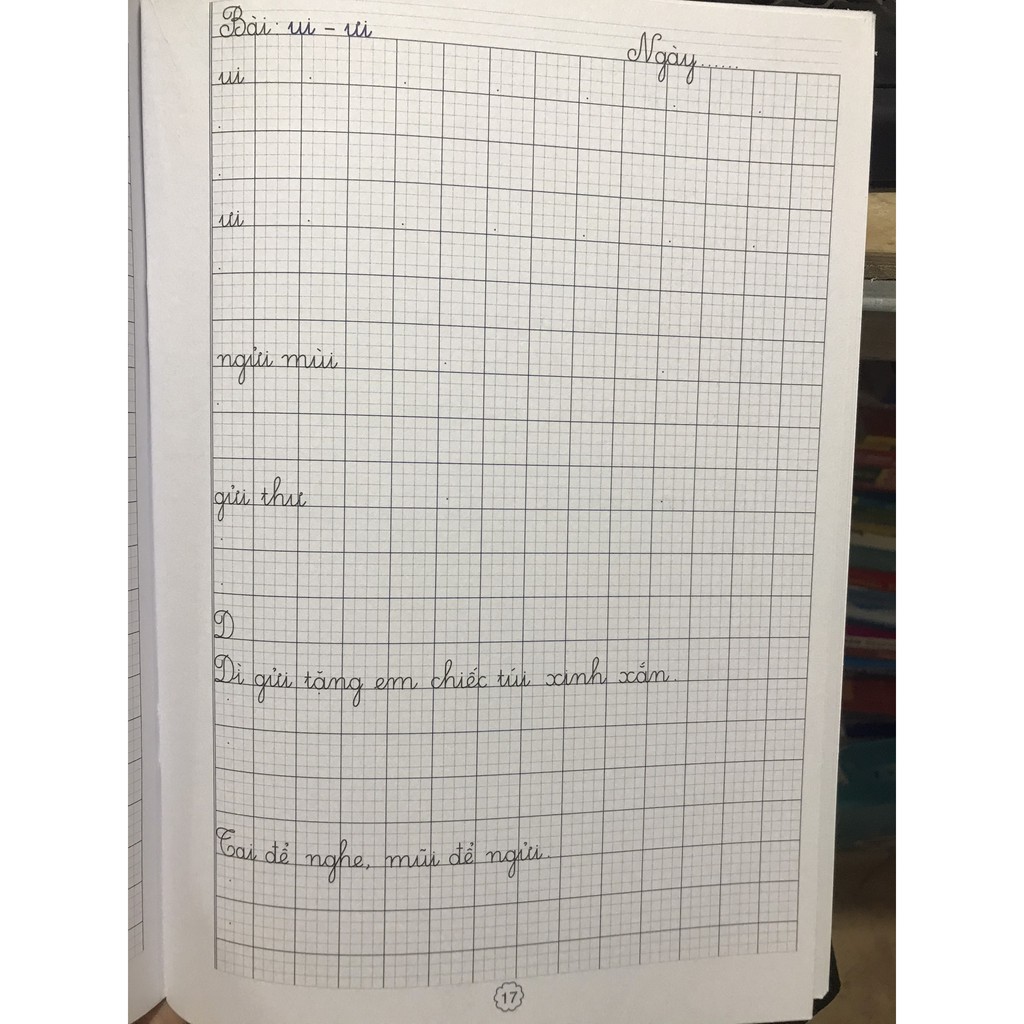 Bài: ui - ưi
Ngày......
ui
ưi
ngửi mùi
gửi thư
D
Dì gửi tặng em chiếc túi xinh xắn.
Tai để nghe, mũi để ngửi.
17